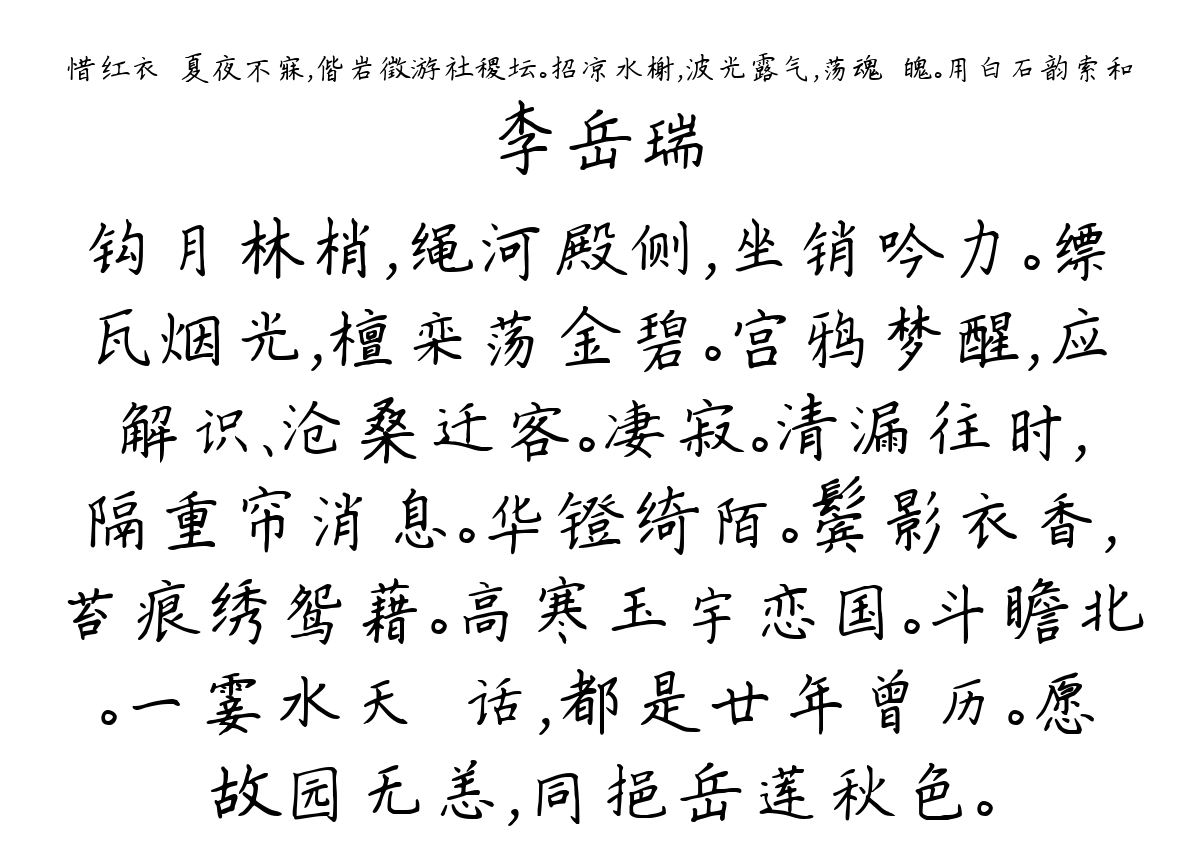 惜红衣 夏夜不寐,偕岩徵游社稷坛。招凉水榭,波光露气,荡魂 魄。用白石韵索和
李岳瑞
钩月林梢,绳河殿侧,坐销吟力。缥
瓦烟光,檀栾荡金碧。宫鸦梦醒,应
解识、沧桑迁客。凄寂。清漏往时,
隔重帘消息。华镫绮陌。鬓影衣香,
苔痕绣鸳藉。高寒玉宇恋国。斗瞻北
。一霎水天 话,都是廿年曾历。愿
故园无恙,同挹岳莲秋色。